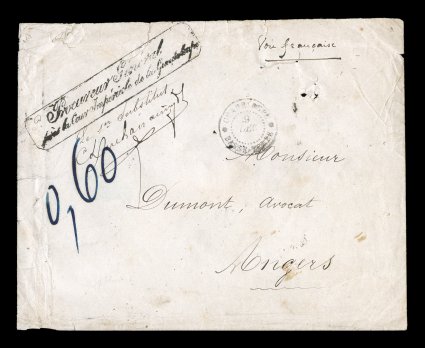 Voie française
Procureur Général
près la Cour Impériale de la Guadeloupe
substitut
0,60
Monsieur
Dumont, avocat
Angers